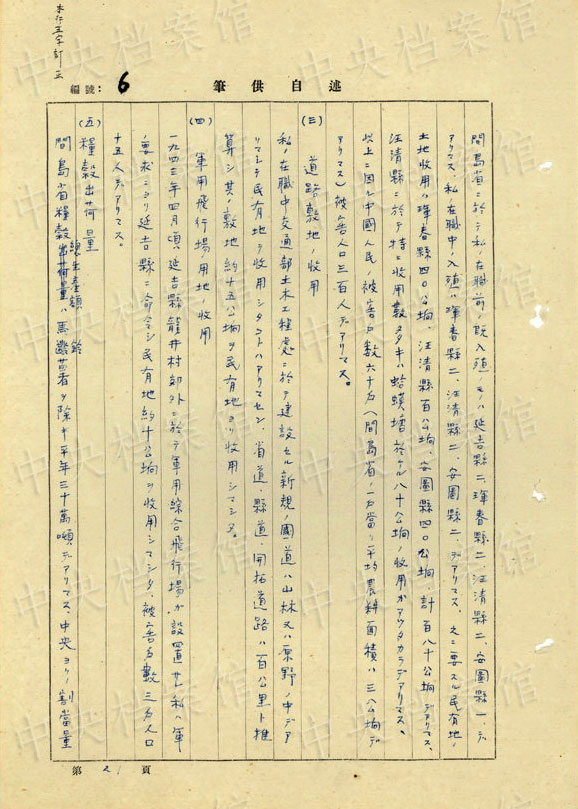 自述供筆
編號：6
間島省ニ於テ私ノ在職前ノ既入殖ノモノハ延吉縣二、琿春縣二、汪清縣二、安圖縣一、デ
アリマス、私ノ在職中ノ入殖ハ琿春縣二、汪清縣二、安圖縣二、デアリマス、之ニ要スル民有地ノ
土地收用ハ琿春縣四〇公垧、汪清縣百公垧、安圖縣四〇公垧、計百八十公垧デアリマス、
汪清縣ニ於テ特ニ收用數多キハ蛤蟆塘ニ於ケル八十公垧ノ收用ガアツタカラデアリマス。
以上ニ因ル中國人民ノ被害戶數六十戶（間島省ノ一戶當リ平均農耕面積ハ三公垧デ
アリマス）被害人口三百人デアリマス。
(三) 道路敷地ノ收用
私ノ在職中交通部土木工程處ニ於テ建設セル新規ノ國道ハ山林又ハ原野ノ中デア
リマシテ民有地ヲ收用シタコトハアリマセン、省道縣道、開拓道路ハ百公里ト推
算シ其ノ敷地約十五公垧ヲ民有地ヨリ收用シマシタ。
(四) 軍用飛行場用地ノ收用
一九四三年四月頃、延吉縣龍井村郊外ニ於テ軍用綜合飛行場ガ設置サレ私ハ軍
ノ要求ニヨリ延吉縣ニ命令シ民有地約十公垧ヲ收用シマシタ、被害戶數三戶人口
十五人デアリマス。
(五) 糧穀出荷量
間島省糧穀總生產額ハ馬鈴薯ヲ除キ平年三十萬噸デアリマス、中央ヨリノ割當量
第 21 頁
中央档案馆